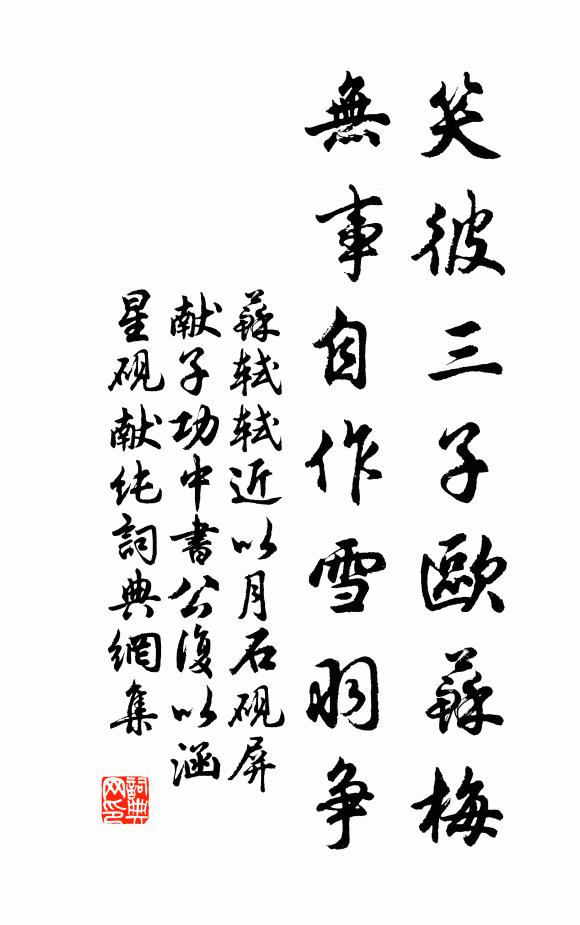 笑彼三子歐蘇梅
無事自作雪羽争
蘇軾軾近以月石硯屏
献子功中書公復以涵
星硯献纯詞典網集
詞典网印